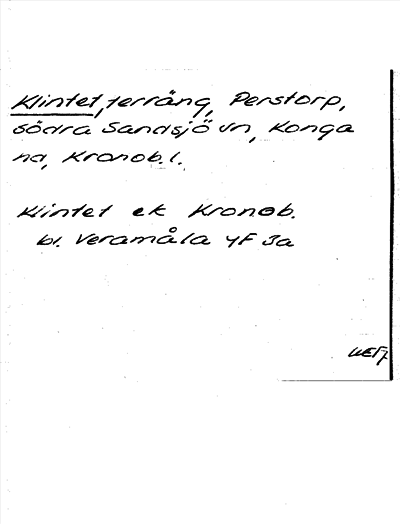 Klintet, terräng, Perstorp,
södra Sandsjö sn, Konga
hd, Kronob. l.
Klintet ek Kronob.
bl. Veramåla 4F 3a